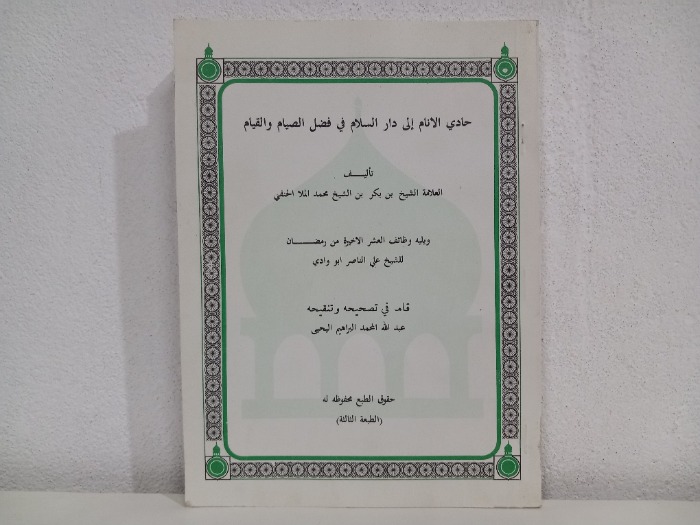 حادي الانام إلى دار السلام في فضل الصيام والقيام
تأليـــف
العلامة الشيخ بن بكر بن الشيخ محمد الملا الحنفي
ويليه وظائف العشر الاخيرة من رمضـــــان
للشيخ علي الناصر ابو وادي
قام في تصحيحه وتنقيحه
عبد الله المحمد البراهيم اليحيى
حقوق الطبع محفوظه له
(الطبعة الثالثة)